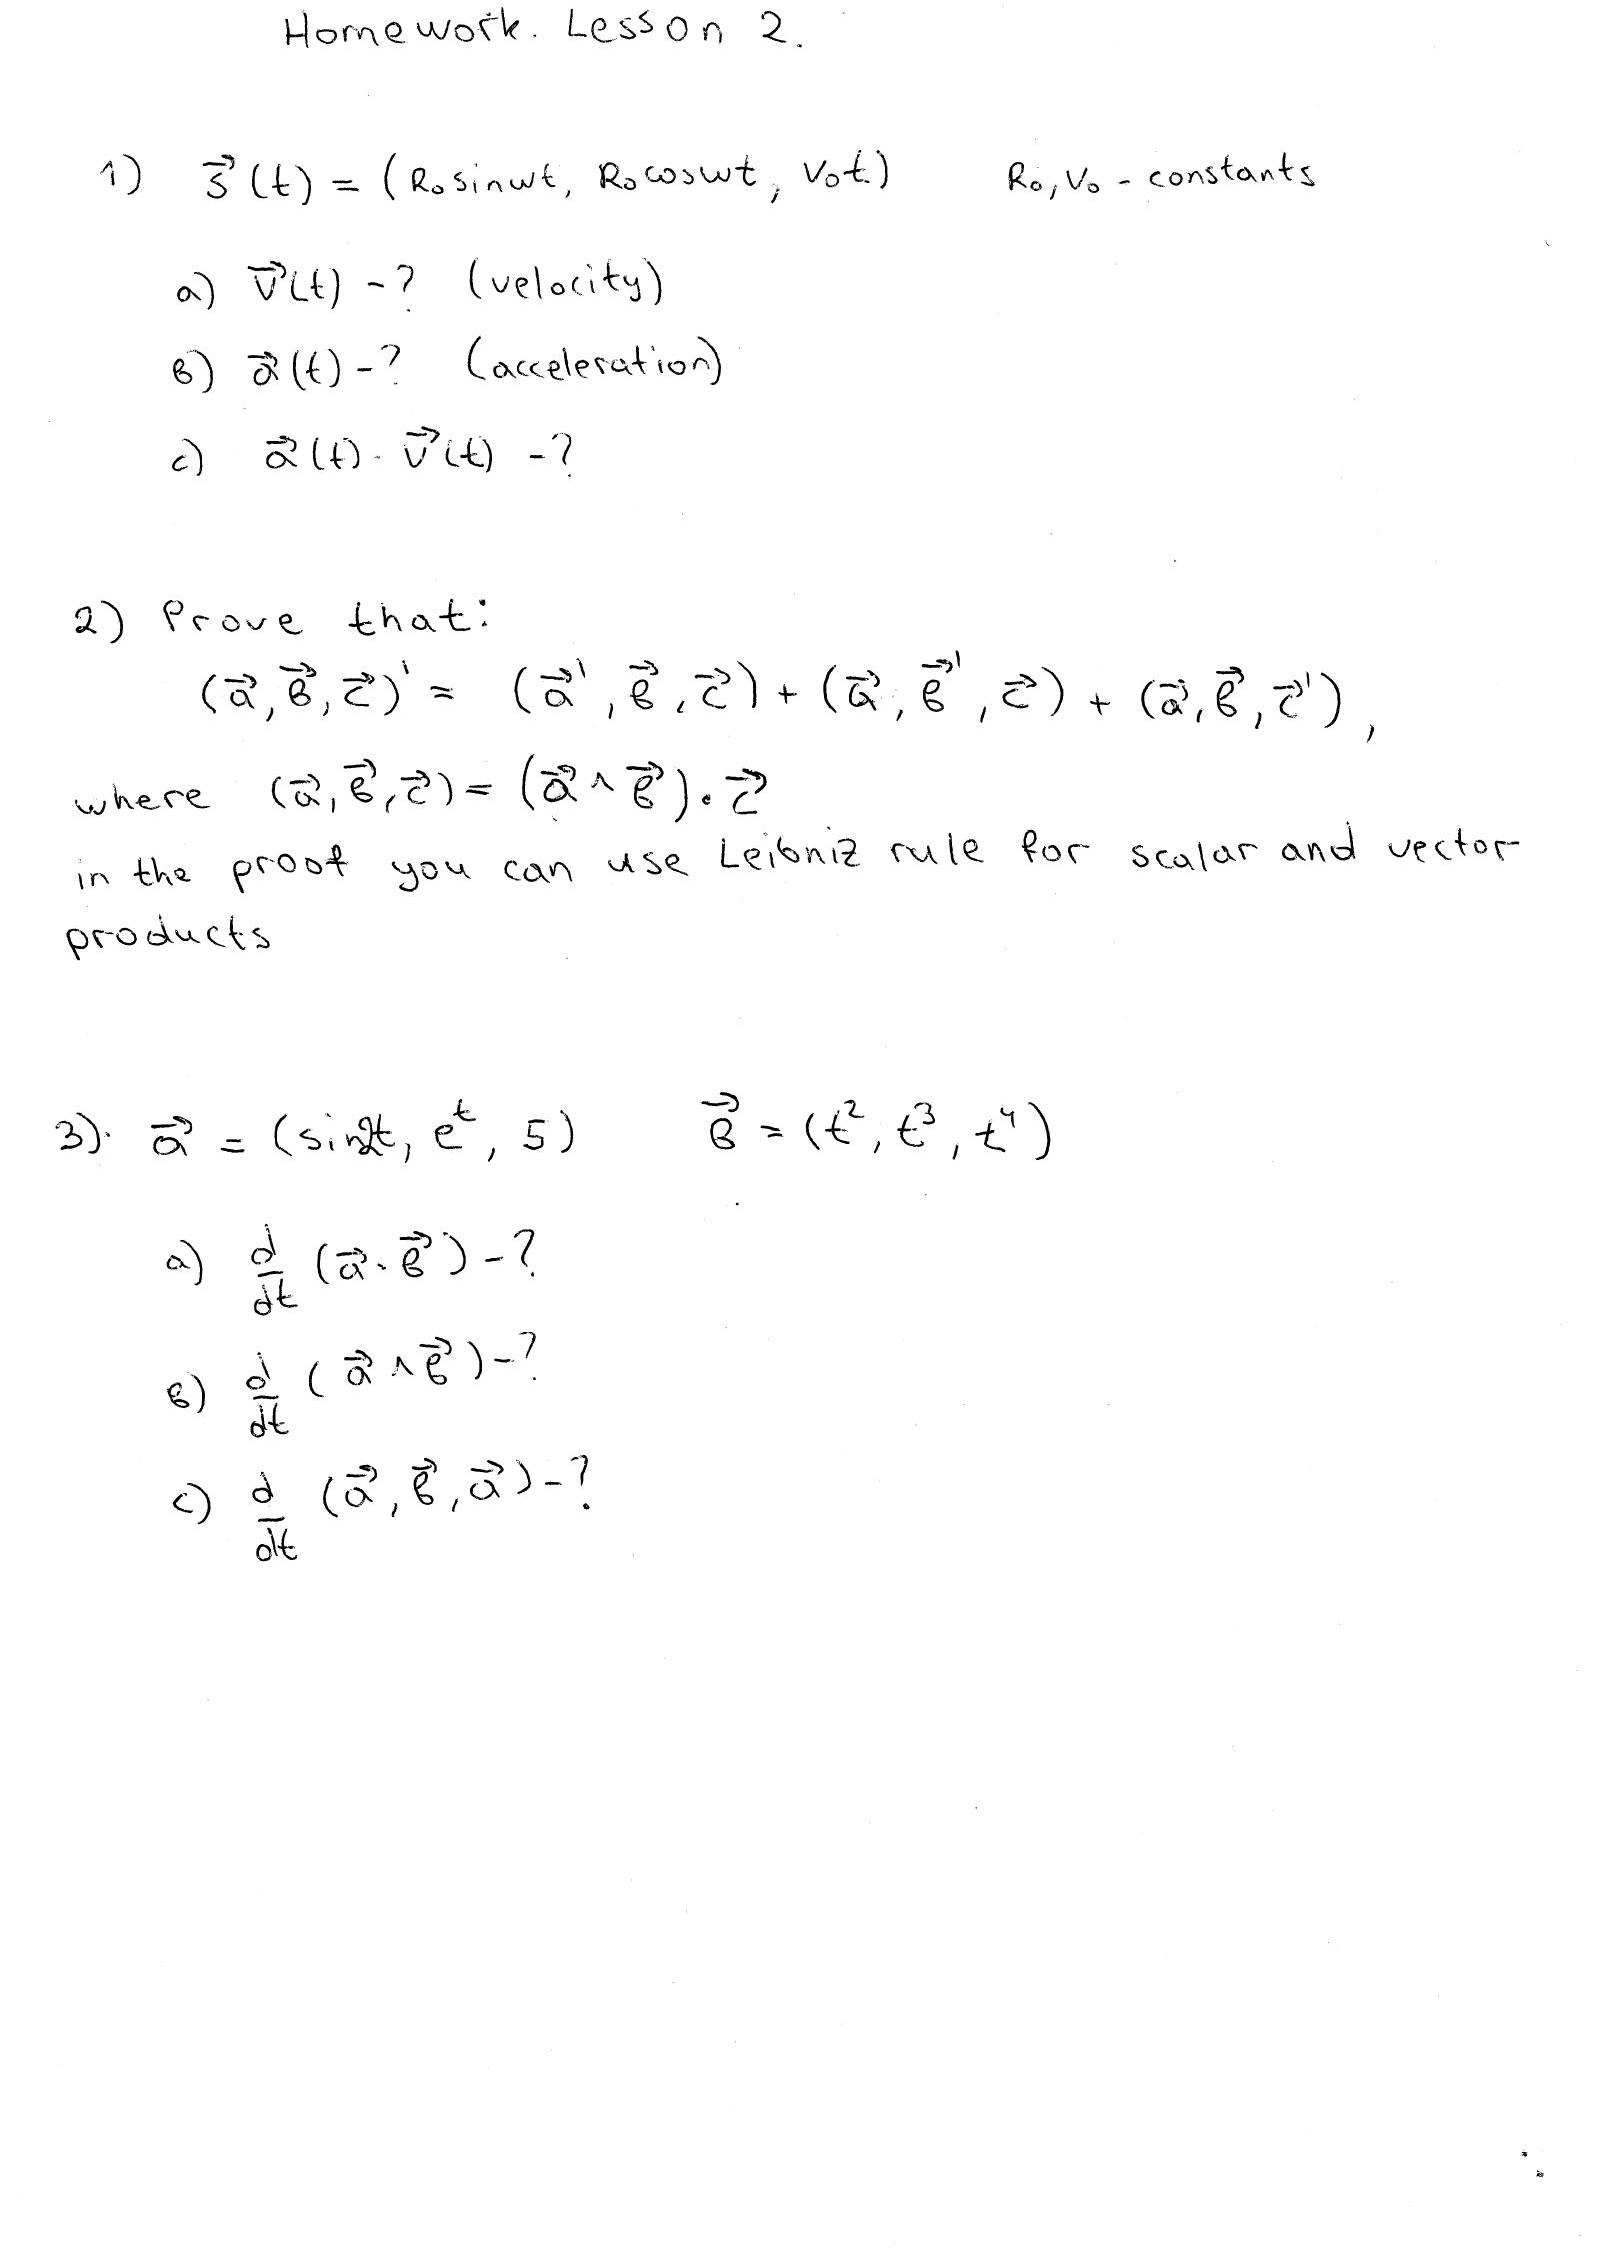 Homework. Lesson 2.
1) s⃗(t) = (R₀sinwt, R₀coswt, V₀t.) R₀, V₀ - constants
a) v⃗(t) - ? (velocity)
в) a⃗(t) - ? (acceleration)
c) a⃗(t) · v⃗(t) - ?
2) Prove that:
(a⃗, в⃗, c⃗)' = (a⃗', в⃗, c⃗) + (a⃗, в⃗', c⃗) + (a⃗, в⃗, c⃗'),
where (a⃗, в⃗, c⃗) = (a⃗ ∧ в⃗) · c⃗
in the proof you can use Leibniz rule for scalar and vector
products
3). a⃗ = (sin2t, eᵗ, 5) в⃗ = (t², t³, t⁴)
a) d/dt (a⃗ · в⃗) - ?
в) d/dt (a⃗ ∧ в⃗) - ?
c) d/dt (a⃗, в⃗, a⃗) - ?